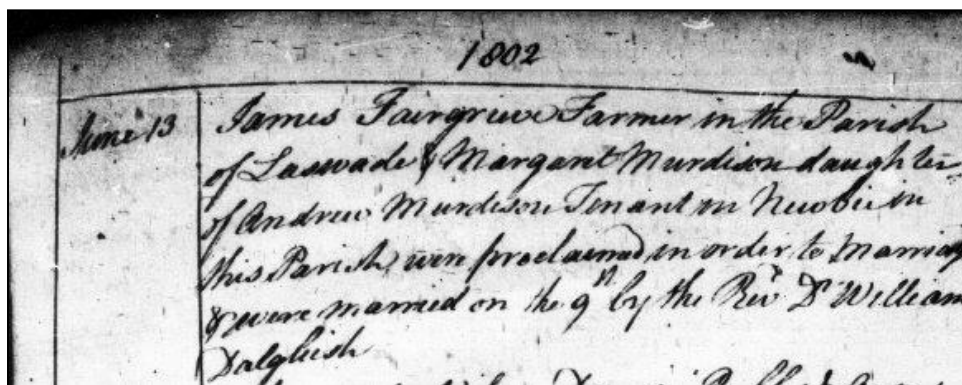 1802
June 13 James Fairgrieve Farmer in the Parish
of Lasswade & Margaret Murdison daughter
of Andrew Murdison Tenant in Newbie in
this Parish, were proclaimed in order to Marriag
& were married on the 9th by the Revd Dr William
Dalgliesh